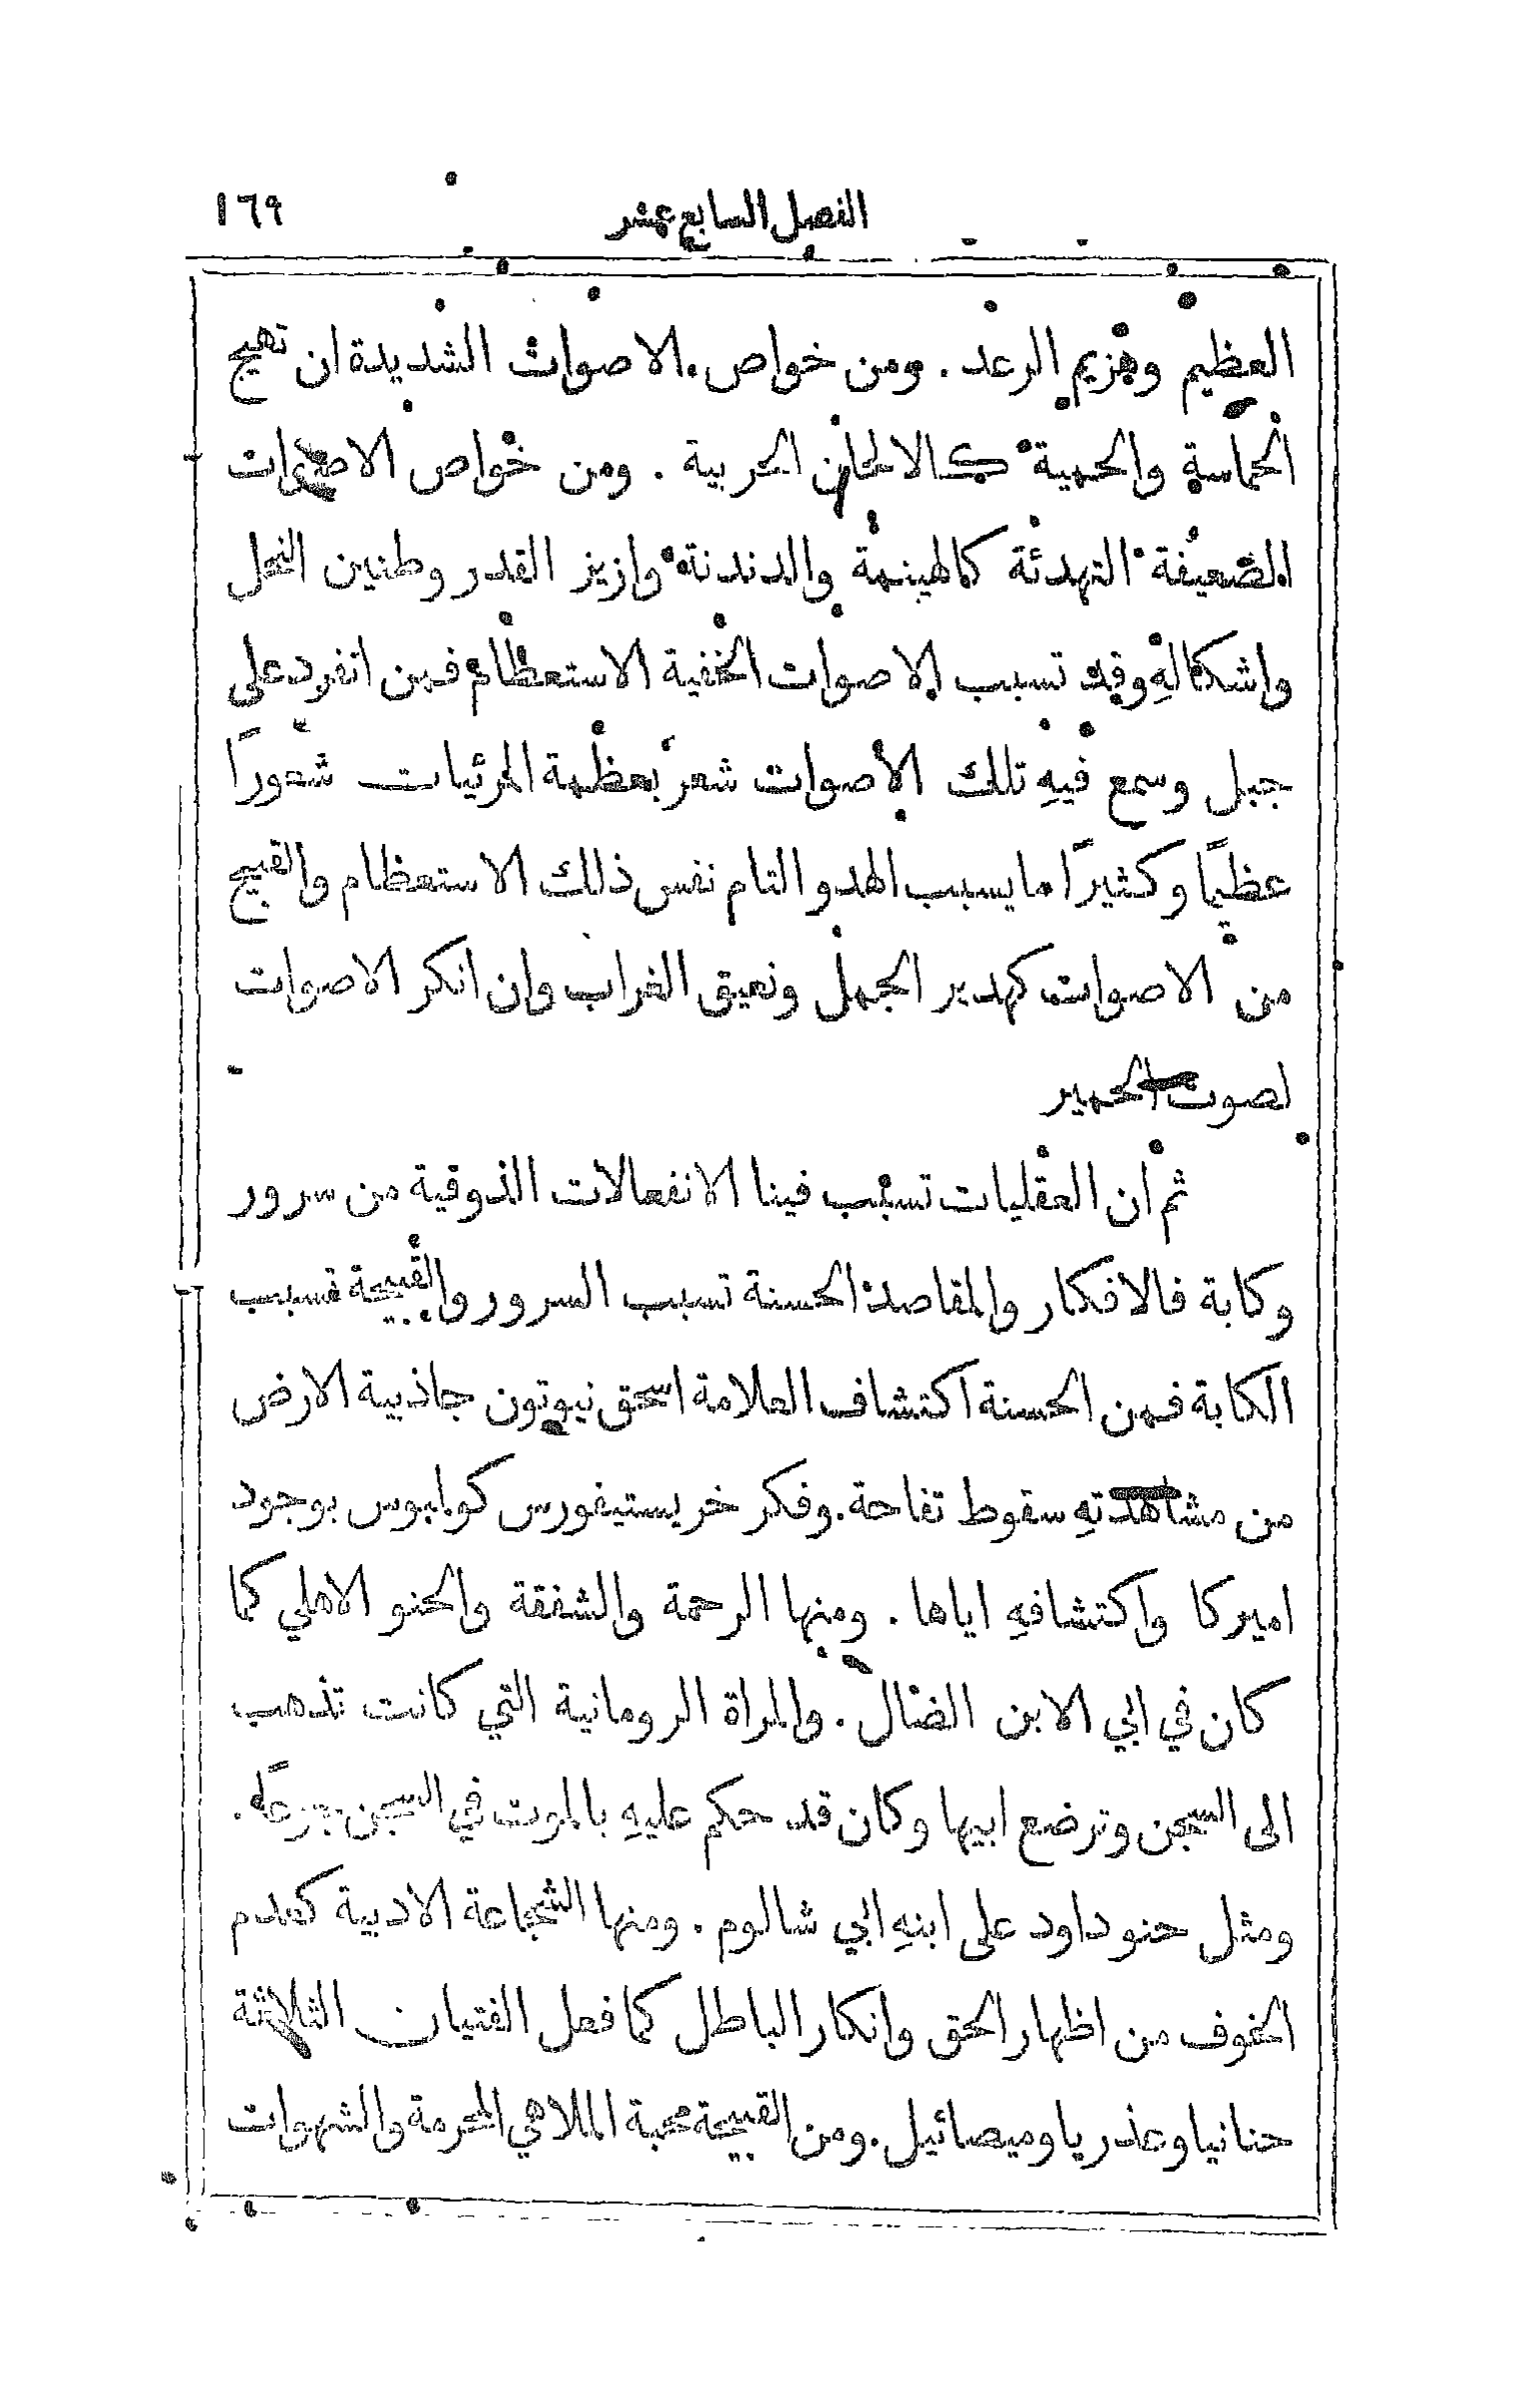 الفصل السابع عشر ١٦٩
العظيم وهزيم الرعد . ومن خواص الاصوات الشديدة ان تهيج
الحماسة والحمية كالالحان الحربية . ومن خواص الاصوات
الضعيفة التهدئة كالهينمة والدندنة وازيز القدر وطنين النحل
واشكالهِ وقد تسبب الاصوات الخفية الاستعظام فمن انفرد على
جبل وسمع فيهِ تلك الاصوات شعر بعظمة المرئيات شعورًا
عظيمًا وكثيرًا ما يسبب الهدو التام نفس ذلك الاستعظام والقبيح
من الاصوات كهدير الجمل ونعيق الغراب وان انكر الاصوات
لصوت الحمير
ثم ان العقليات تسبب فينا الانفعالات الذوقية من سرور
وكابة فالافكار والمقاصد الحسنة تسبب السرور والقبيحة تسبب
الكابة فمن الحسنة اكتشاف العلامة اسحق نيوتون جاذبية الارض
من مشاهدتهِ سقوط تفاحة . وفكر خريستيفورس كولمبوس بوجود
اميركا واكتشافهِ اياها . ومنها الرحمة والشفقة والحنو الاهلي كما
كان في ابي الابن الضال . والمراة الرومانية التي كانت تذهب
الى السجن وترضع ابيها وكان قد حكم عليهِ بالموت في السجن جوعًا .
ومثل حنو داود على ابنهِ ابي شالوم . ومنها الشجاعة الادبية كعدم
الخوف من اظهار الحق وانكار الباطل كما فعل الفتيان الثلاثة
حنانيا وعذريا وميصائيل . ومن القبيحة محبة الملاهي المحرمة والشهوات